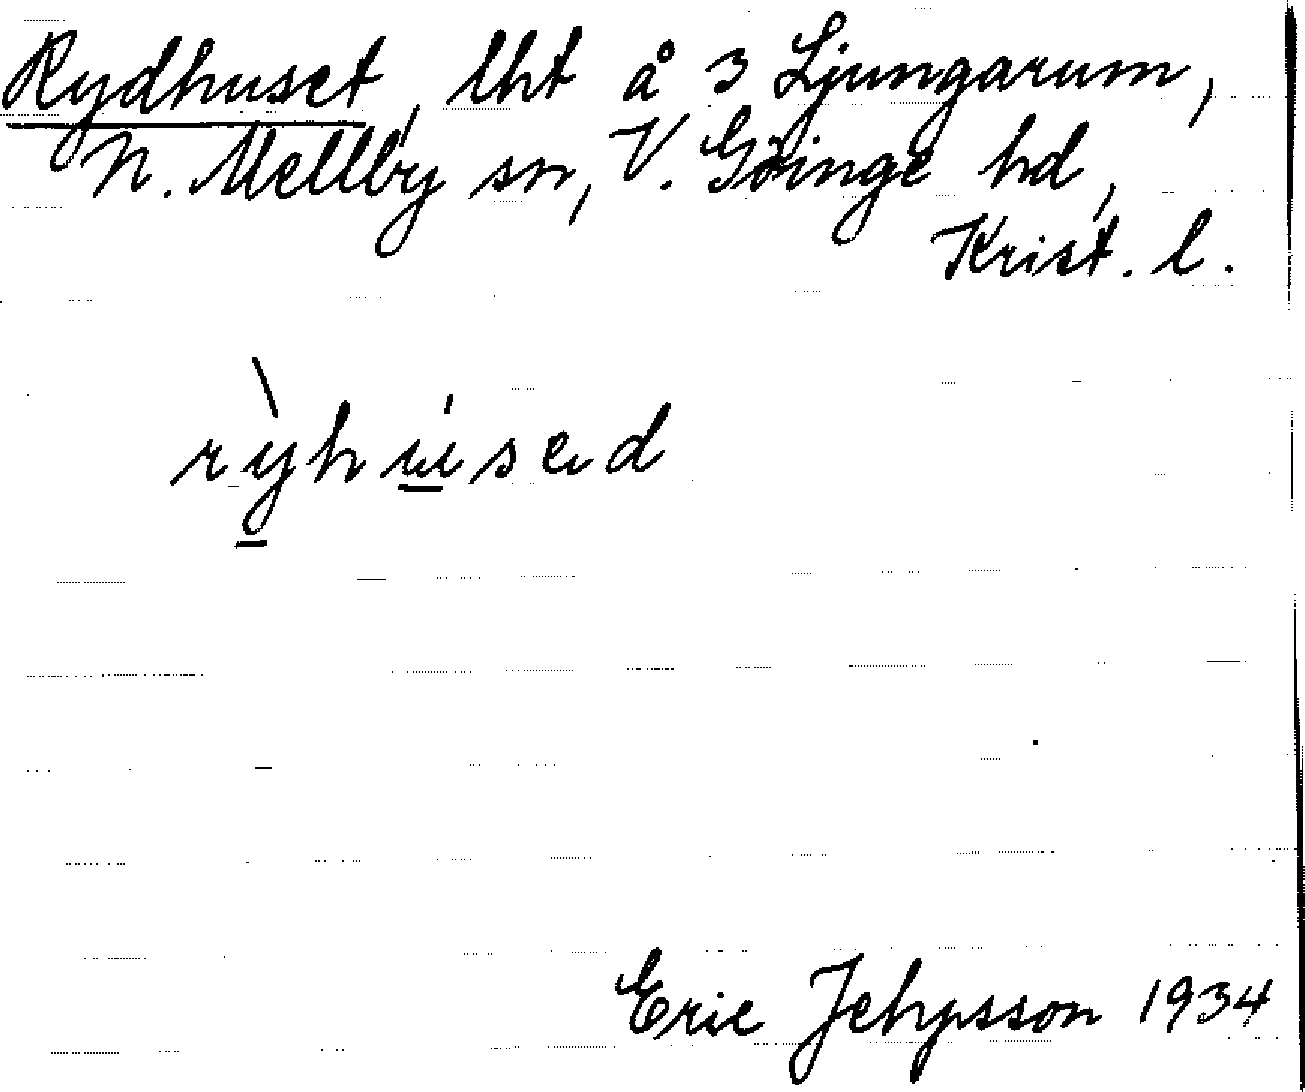 Rydhuset, lht å 3 Ljungarum,
N. Mellby sn, V. Göinge hd,
Krist. l.
rỳhu̍sed
Eric Jehpsson 1934